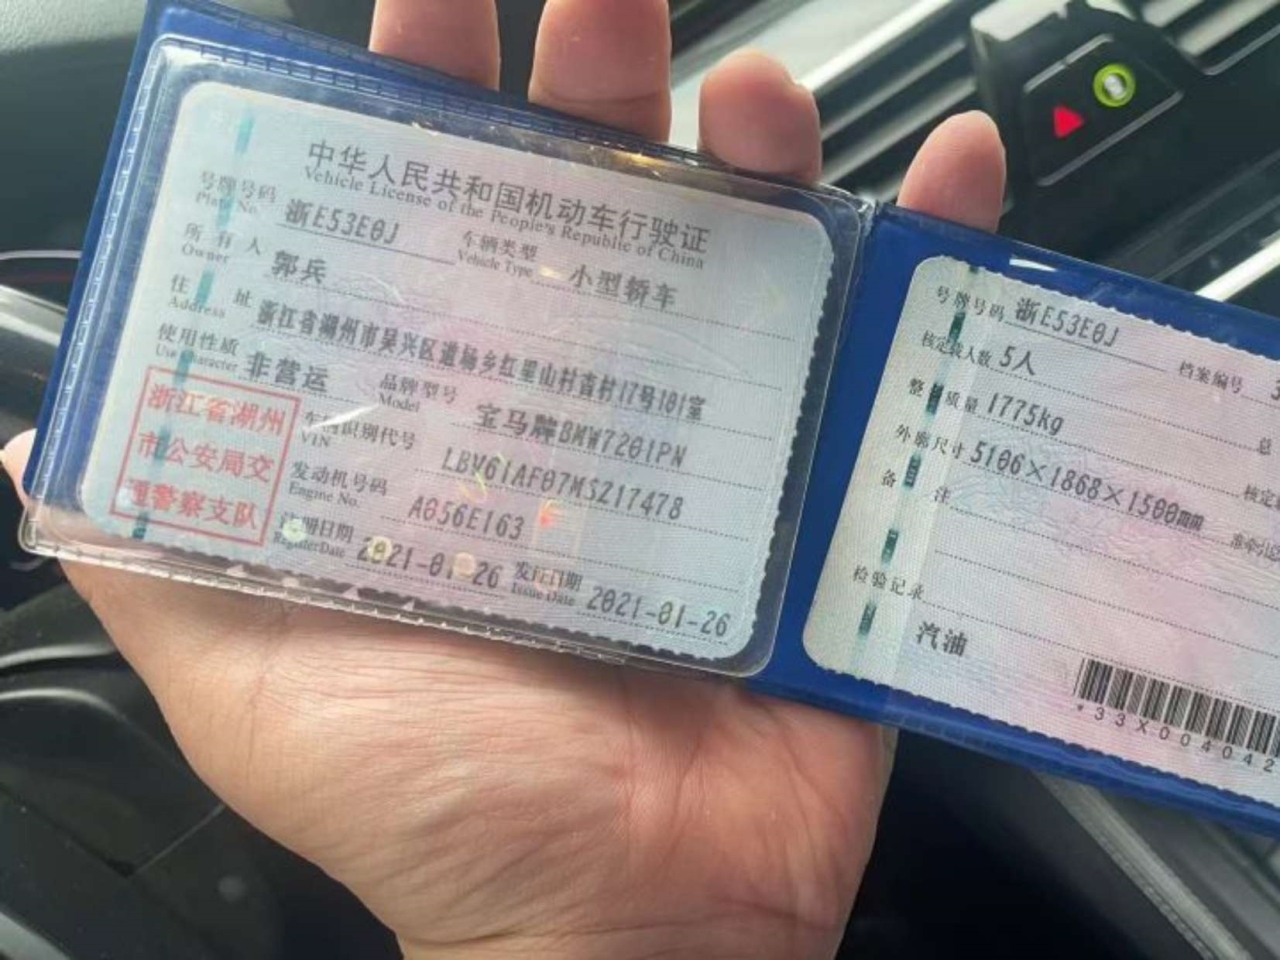 中华人民共和国机动车行驶证
Vehicle License of the People's Republic of China
号牌号码 浙E53E0J 车辆类型 小型轿车
Plate No. Vehicle Type
所有人 郭兵
Owner
住址 浙江省湖州市吴兴区道场乡红里山村首村17号101室
Address
使用性质 非营运 品牌型号 宝马牌BMW7201PN
Use Character Model
浙江省湖州
市公安局交
通警察支队
车辆识别代号 LBV61AF07MS217478
VIN
发动机号码 A056E163
Engine No.
注册日期 2021-01-26 发证日期 2021-01-26
Register Date Issue Date
号牌号码 浙E53E0J 档案编号
核定载人数 5人 总
整备质量 1775kg 核定
外廓尺寸 5106×1868×1500mm 准牵引
备注
检验记录
汽油
*33X004042